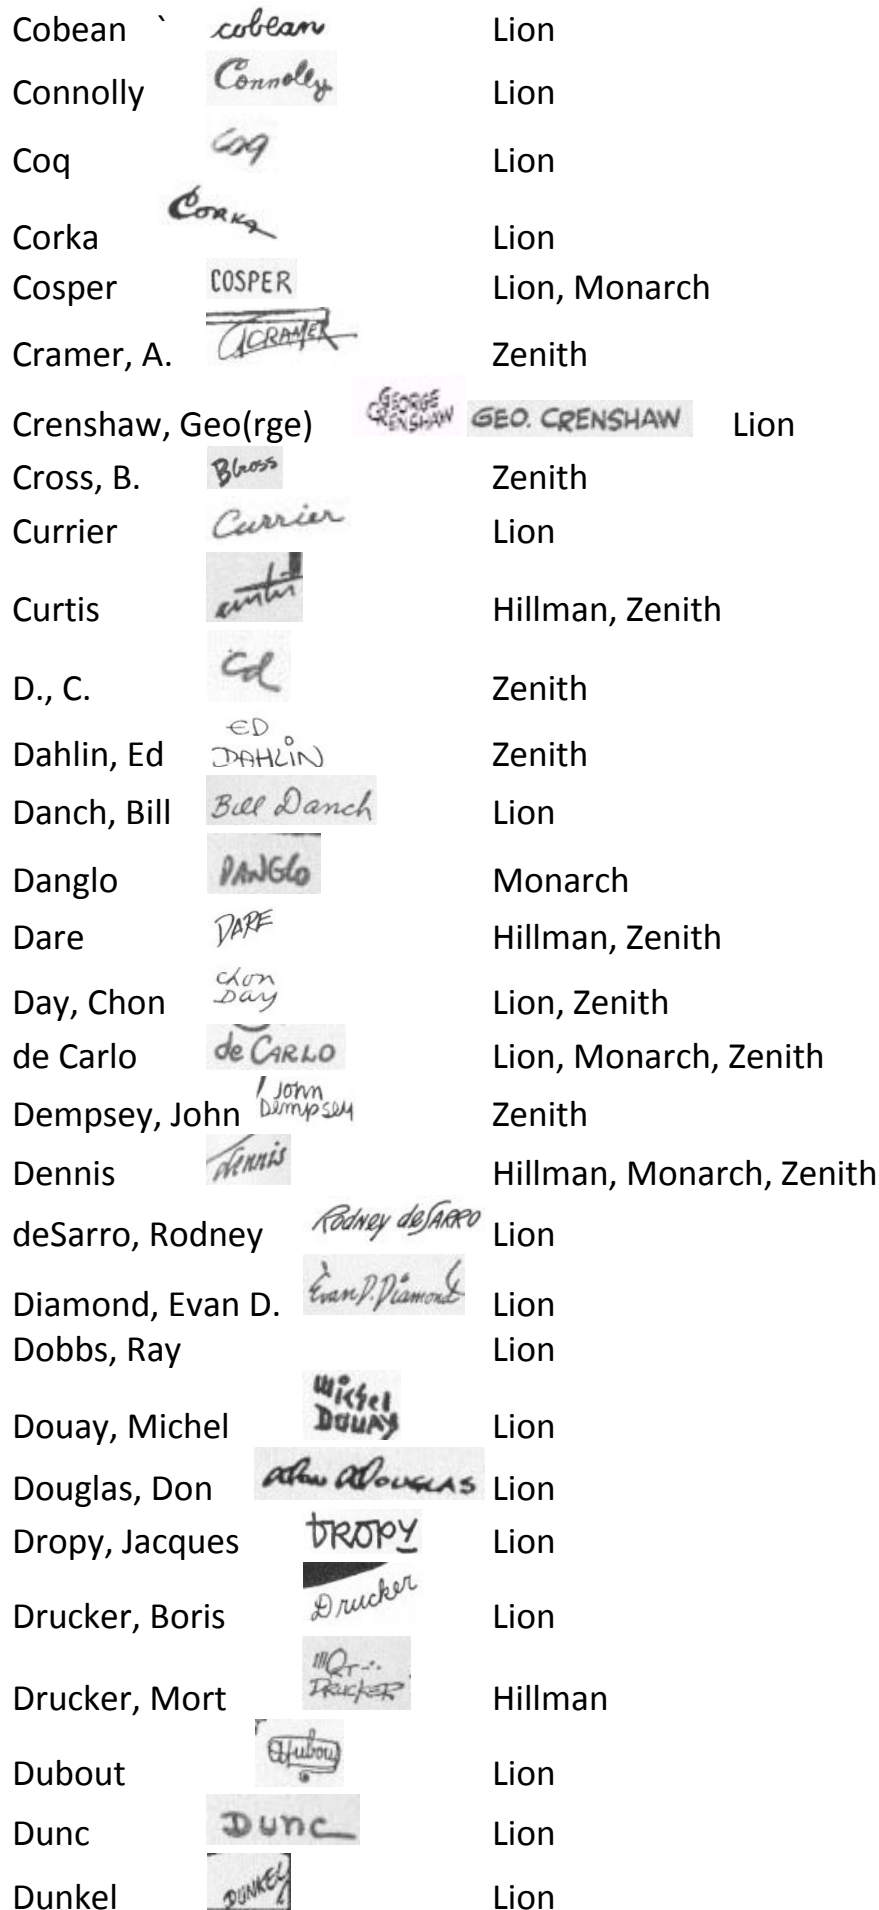 Cobean ` cobean Lion
Connolly Connolly Lion
Coq Coq Lion
Corka Corka Lion
Cosper COSPER Lion, Monarch
Cramer, A. ACRAMER Zenith
Crenshaw, Geo(rge) GEORGE CRENSHAW GEO. CRENSHAW Lion
Cross, B. BCross Zenith
Currier Currier Lion
Curtis curtis Hillman, Zenith
D., C. cd Zenith
Dahlin, Ed ED DAHLiN Zenith
Danch, Bill Bill Danch Lion
Danglo DANGLO Monarch
Dare DARE Hillman, Zenith
Day, Chon Chon Day Lion, Zenith
de Carlo de CARLO Lion, Monarch, Zenith
Dempsey, John John Dempsey Zenith
Dennis dennis Hillman, Monarch, Zenith
deSarro, Rodney Rodney deSARRO Lion
Diamond, Evan D. Evan D. Diamond Lion
Dobbs, Ray Lion
Douay, Michel Michel DOUAY Lion
Douglas, Don Don DOUGLAS Lion
Dropy, Jacques DROPY Lion
Drucker, Boris Drucker Lion
Drucker, Mort MORT DRUCKER Hillman
Dubout dubout Lion
Dunc Dunc Lion
Dunkel DUNKEL Lion